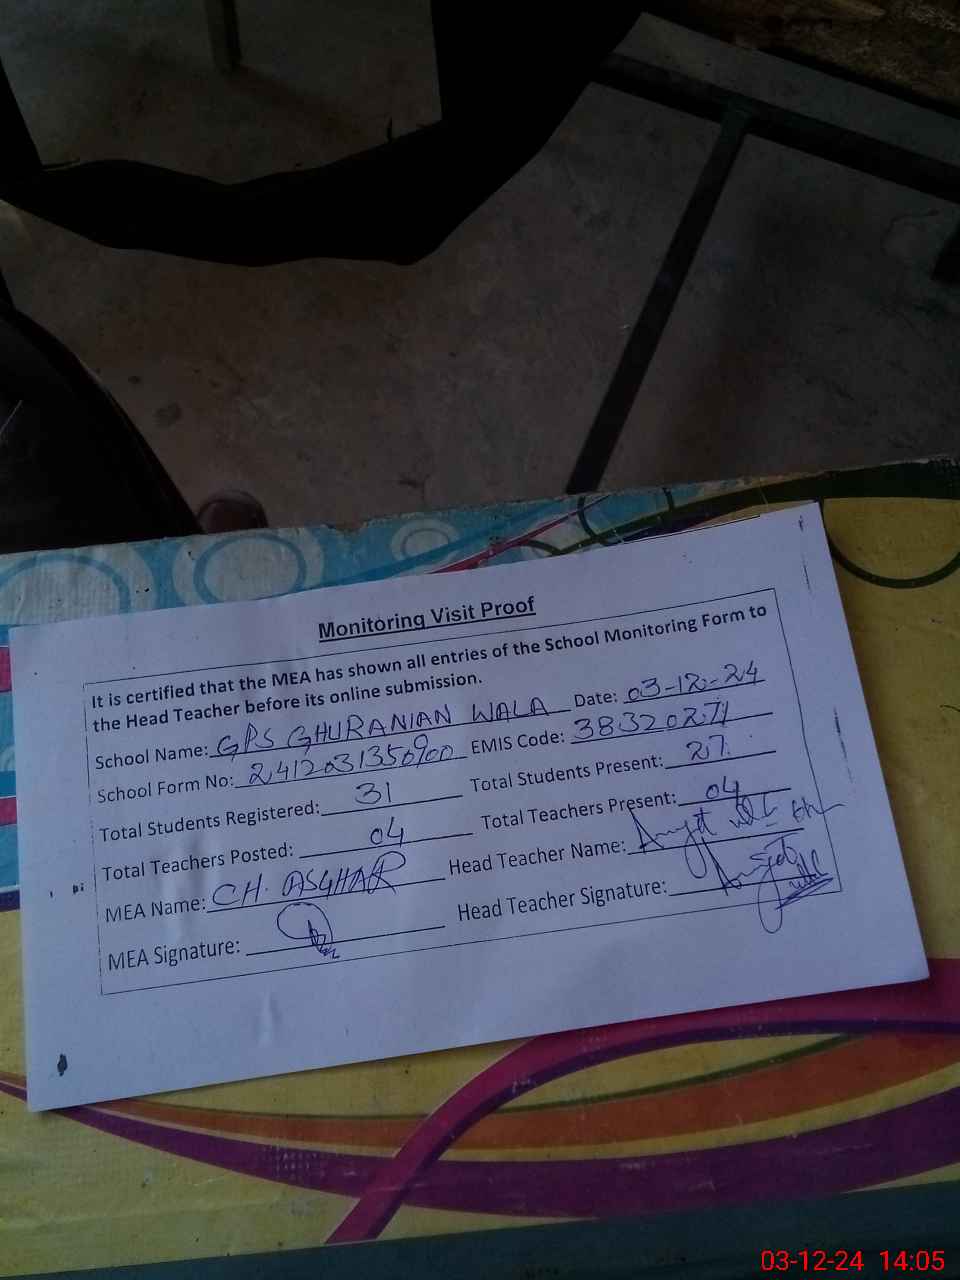 Monitoring Visit Proof
It is certified that the MEA has shown all entries of the School Monitoring Form to
the Head Teacher before its online submission.
School Name: GPS GHURANIAN WALA Date: 03-12-24
School Form No: EMIS Code: 38320271
Total Students Registered: 31 Total Students Present: 27
Total Teachers Posted: 04 Total Teachers Present: 04
MEA Name: CH. ASGHAR Head Teacher Name:
MEA Signature: Head Teacher Signature:
03-12-24 14:05